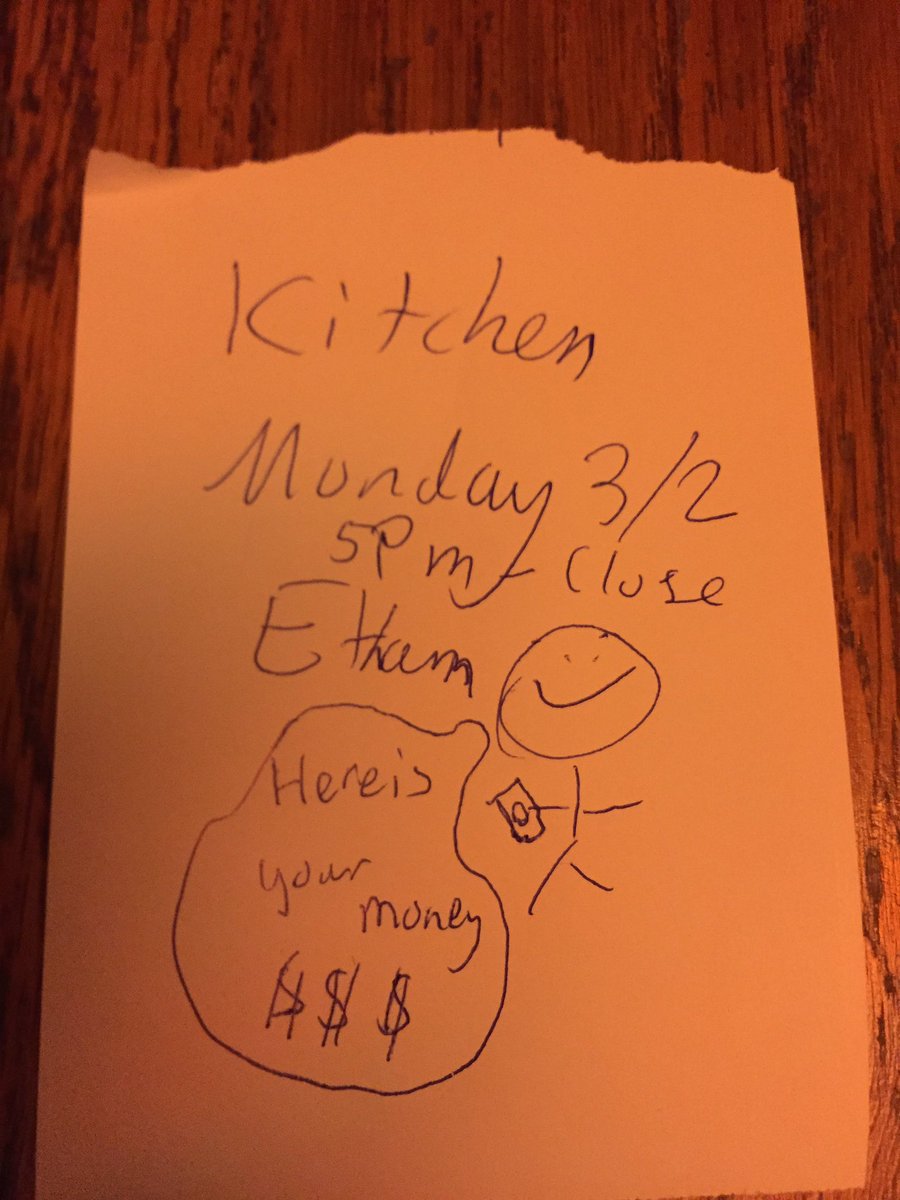 Kitchen
Monday 3/2
5Pm - Close
Ethan
Here is
your
money
$ $ $